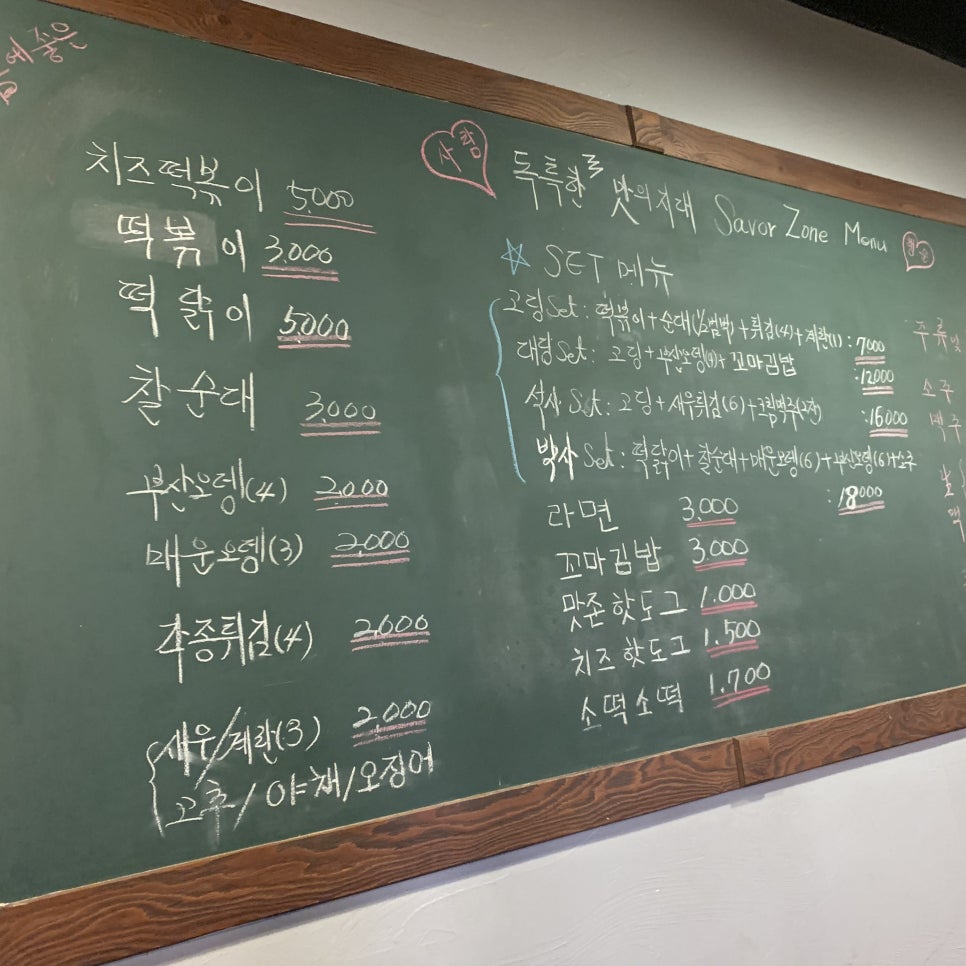 에 좋은
치즈떡볶이 5,000
떡볶이 3,000
떡닭이 5,000
찰순대 3,000
부산오뎅(4) 2,000
매운오뎅(3) 2,000
각종튀김(4) 2,000
새우/계란(3) 2,000
고추/야채/오징어
사랑
독특한 맛의지대 Savor Zone Menu
SET 메뉴
고딩Set: 떡볶이+순대(1/2범벅)+튀김(4)+계란(1) : 7000
대딩Set: 고딩+부산오뎅(4)+꼬마김밥 : 12000
석사 Set: 고딩+새우튀김(6)+크림맥주(2잔) : 16000
박사 Set: 떡닭이+찰순대+매운오뎅(6)+부산오뎅(6)+소주 : 18000
라면 3,000
꼬마김밥 3,000
맛준핫도그 1.000
치즈핫도그 1.500
소떡소떡 1.700
주류 및
소주
맥주